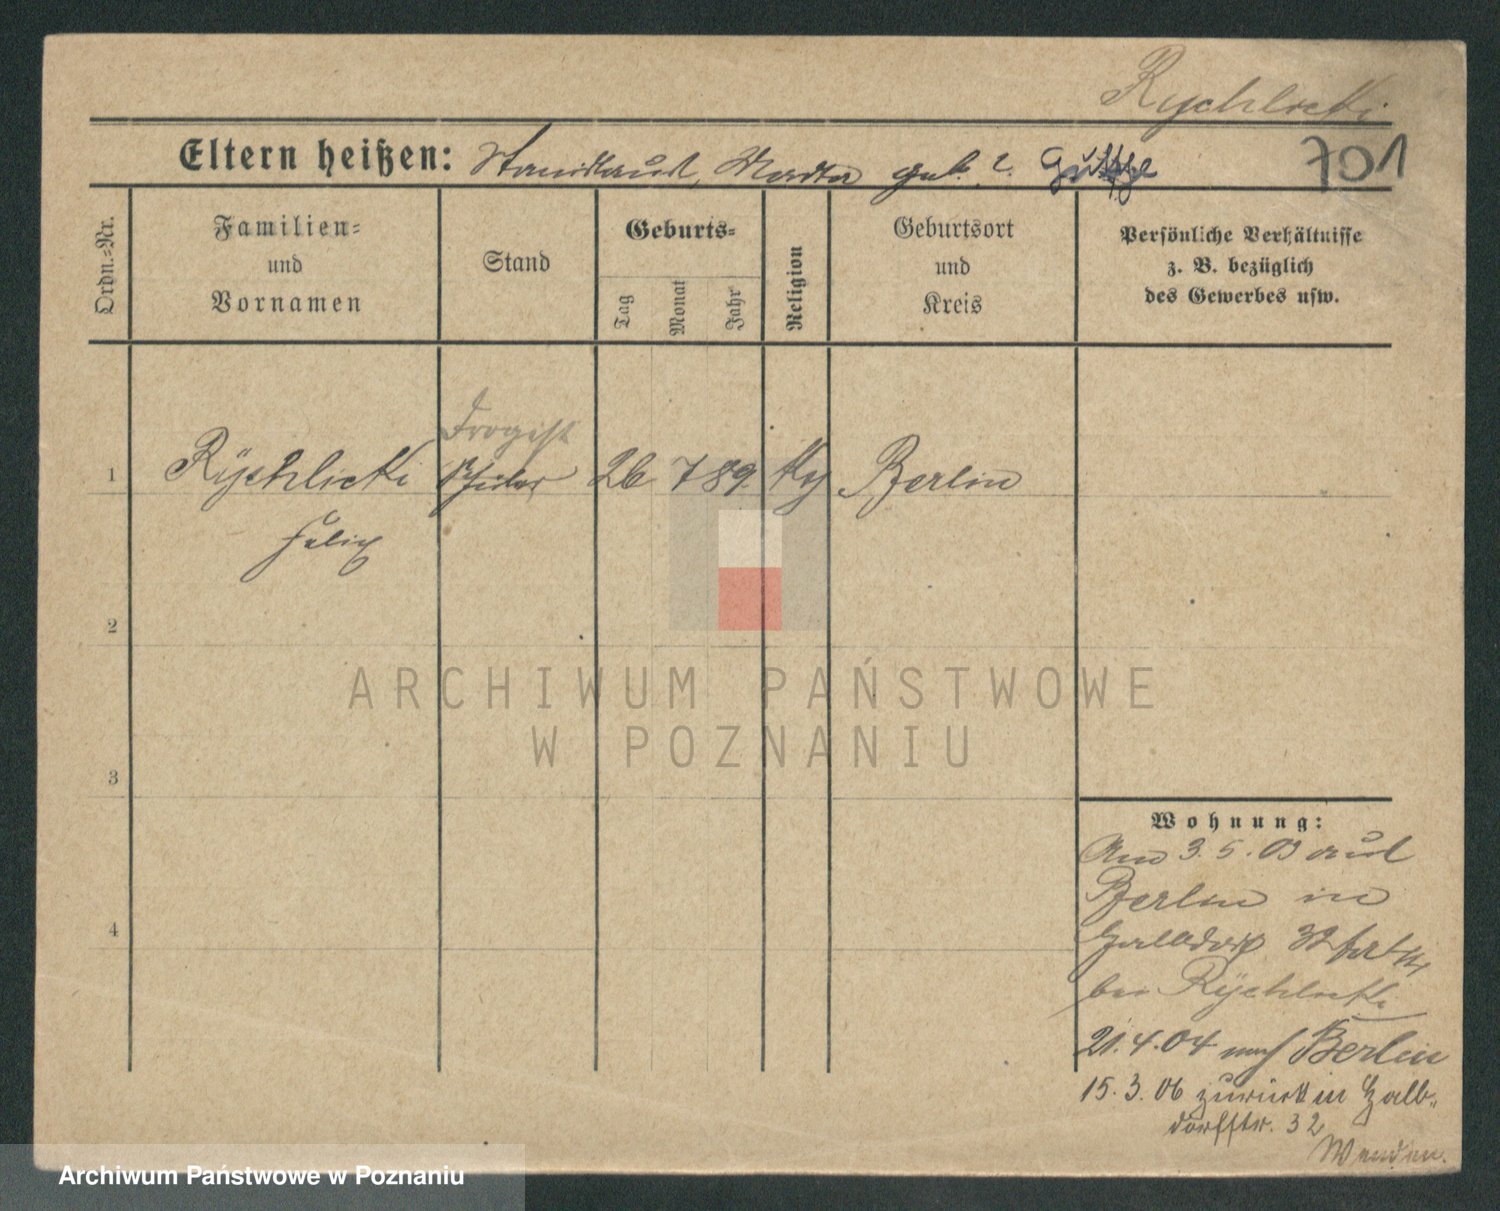 Rychlicki
Eltern heißen: Stanislaus, Martha geb. ?
701
Ordn.-Nr.
Familien-
und
Vornamen
Stand
Geburts-
Tag
Monat
Jahr
Religion
Geburtsort
und
Kreis
Persönliche Verhältnisse
z. B. bezüglich
des Gewerbes usw.
Drogist
1 Rÿchlicki Schüler 26 7 89. Berlin
Felix
2
ARCHIWUM PAŃSTWOWE
W POZNANIU
3
Wohnung:
Am 3.5.03 aus
Berlin in
32
4
bei Rÿchlicki
21.4.04 nach Berlin
15.3.06 zurück in Halb-
dorfstr. 32
Archiwum Państwowe w Poznaniu